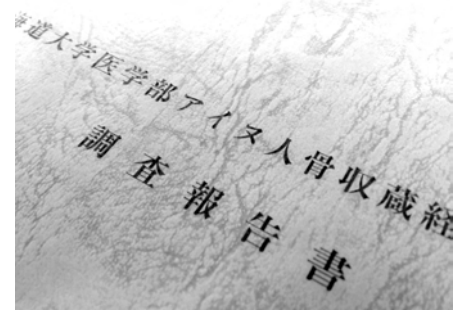 海道大学医学部アイヌ人骨収蔵経
調査報告書